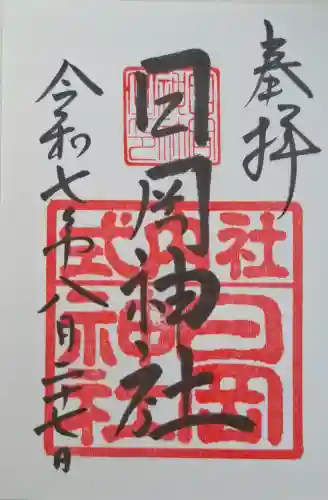 奉拝
日岡神社
令和七年八月二十七日
式内社
日岡神社